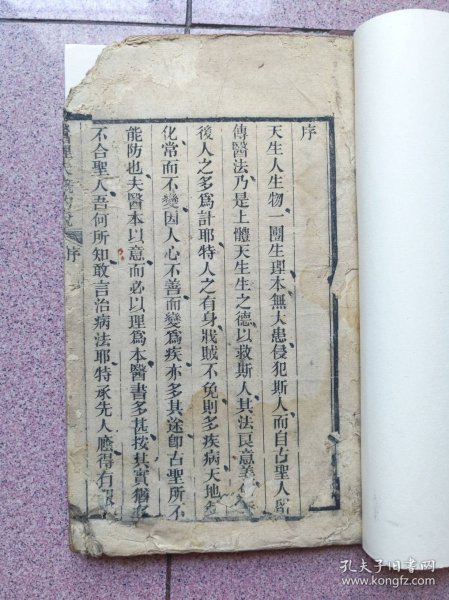 序
天生人生物一團生理本無大患侵犯斯人而自古聖人
傳醫法乃是上體天生生之德以救斯人其法良意美
後人之多爲計耶特人之有身戕賊不免則多疾病天地
化常而不變因人心不善而變爲疾亦多其途卽古聖所不
能防也夫醫本以意而必以理爲本醫書多甚按其實
不合聖人吾何所知敢言治病法耶特承先人應得有
序
孔夫子旧书网
www.kongfz.com